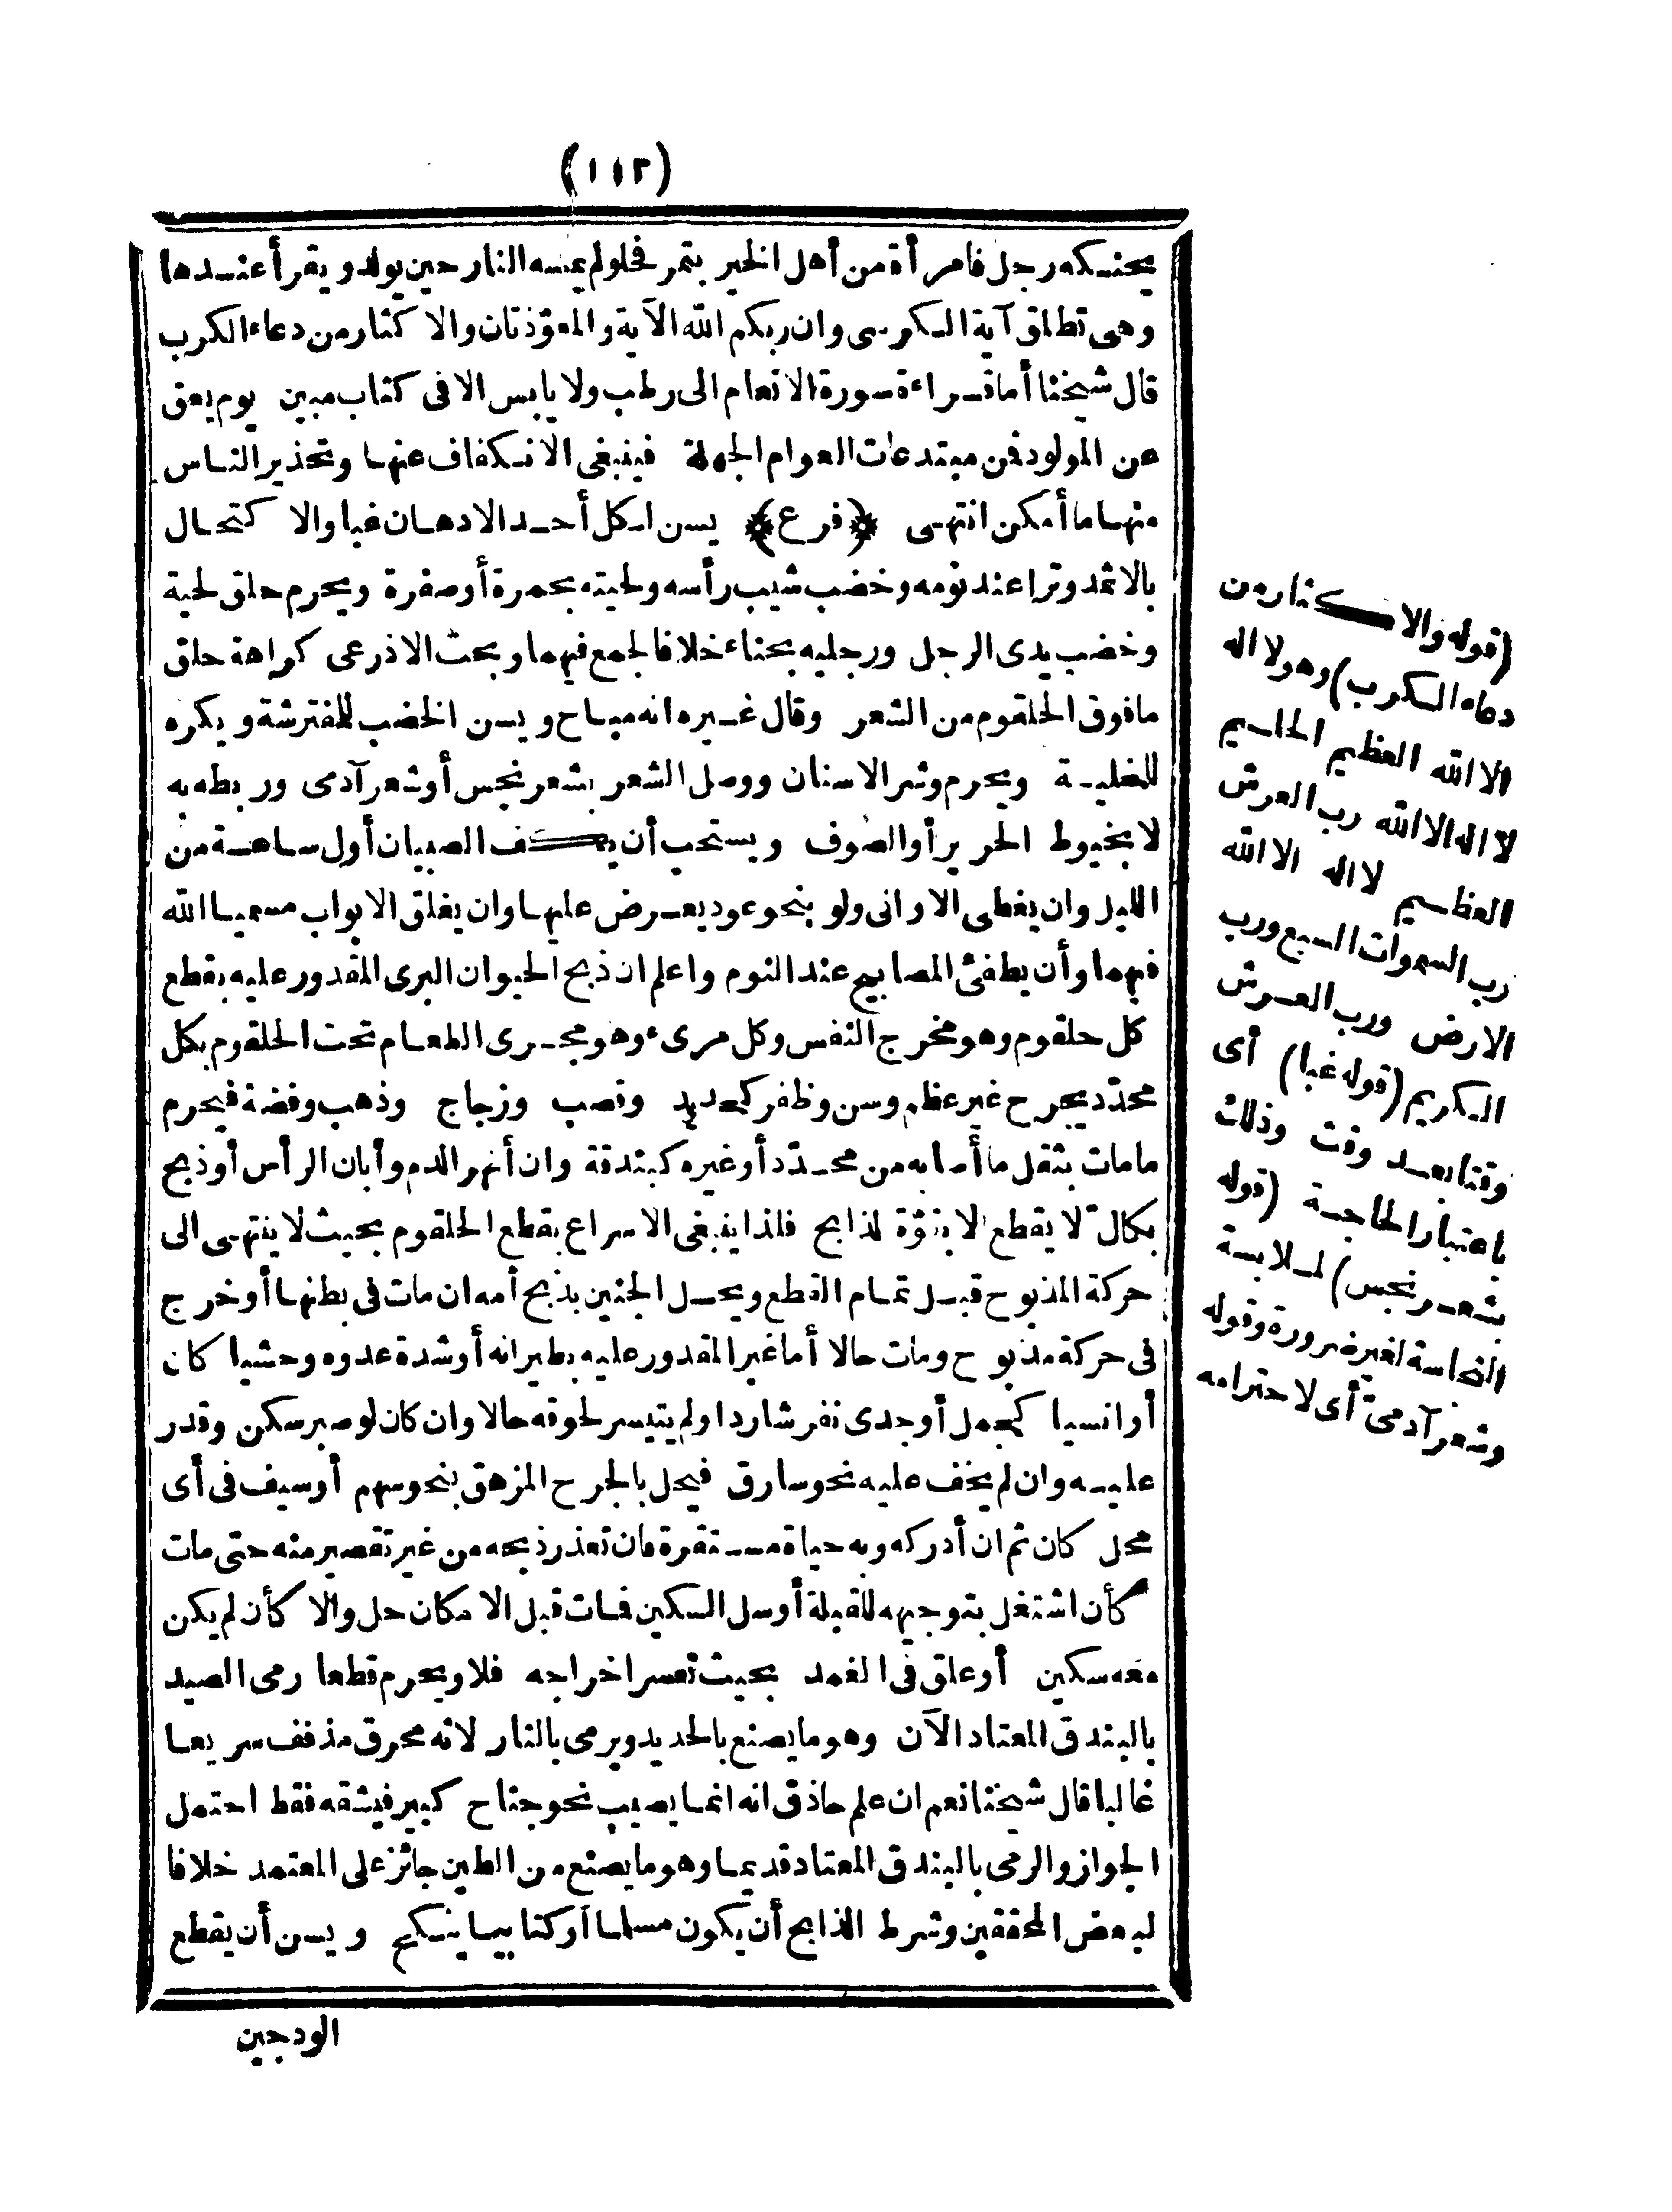 (١١٢)
يحنكه رجل فامرأة من أهل الخير بتمر فحلو لم يمسه النار حين يولد ويقرأ عندها
وهى تطلق آية الكرسى وان ربكم الله الآية والمعوّذتان والاكثار من دعاء الكرب
قال شيخنا أما قراءة سورة الانعام الى رطب ولا يابس الا فى كتاب مبين يوم يعق
عن المولود فمن مبتدعات العوام الجهلة فينبغى الانكفاف عنها وتحذير الناس
منها ما أمكن انتهى ﴿فرع﴾ يسن لكل أحد الادهان غبا والاكتحال
بالاثمد وترا عند نومه وخضب شيب رأسه ولحيته بحمرة أو صفرة ويحرم حلق لحية
وخضب يدى الرجل ورجليه بحناء خلافا لجمع فيهما وبحث الاذرعى كراهة حلق
ما فوق الحلقوم من الشعر وقال غيره انه مباح ويسن الخضب للمفترشة ويكره
للخلية ويحرم وشر الاسنان ووصل الشعر بشعر نجس أو شعر آدمى وربطه به
لا بخيوط الحرير أو الصوف ويستحب أن يكف الصبيان أول ساعة من
الليل وان يغطى الاوانى ولو بنحو عود يعرض عليها وان يغلق الابواب مسميا الله
فيهما وأن يطفئ المصابيح عند النوم واعلم ان ذبح الحيوان البرى المقدور عليه بقطع
كل حلقوم وهو مخرج النفس وكل مرىء وهو مجرى الطعام تحت الحلقوم بكل
محدّد يجرح غير عظم وسن وظفر كحديد وقصب وزجاج وذهب وفضة فيحرم
ما مات بثقل ما أصابه من محدّد أو غيره كبندقة وان أنهر الدم وأبان الرأس أو ذبح
بكالّ لا يقطع الا بقوّة لذابح فلذا ينبغى الاسراع بقطع الحلقوم بحيث لا ينتهى الى
حركة المذبوح قبل تمام القطع ويحل الجنين بذبح أمه ان مات فى بطنها أو خرج
فى حركة مذبوح ومات حالا أما غير المقدور عليه بطيرانه أو شدة عدوه وحشيا كان
أو انسيا كجمل أو جدى نفر شاردا ولم يتيسر لحوقه حالا وان كان لو صبر سكن وقدر
عليه وان لم يخف عليه نحو سارق فيحل بالجرح المزهق بنحو سهم أو سيف فى أى
محل كان ثم ان أدركه وبه حياة مستقرة فان تعذر ذبحه من غير تقصير منه حتى مات
كأن اشتغل بتوجيهه للقبلة أو سل السكين فمات قبل الامكان حل والا كأن لم يكن
معه سكين أو علق فى الغمد بحيث تعسر اخراجه فلا ويحرم قطعا رمى الصيد
بالبندق المعتاد الآن وهو ما يصنع بالحديد ويرمى بالنار لانه محرق مذفف سريعا
غالبا قال شيخنا نعم ان علم حاذق انه انما يصيب نحو جناح كبير فيشقه فقط احتمل
الجواز والرمى بالبندق المعتاد قديما وهو ما يصنع من الطين جائز على المعتمد خلافا
لبعض المحققين وشرط الذابح أن يكون مسلما أو كتابيا ينكح ويسن أن يقطع
الودجين
(قوله والاكثار من
دعاء الكرب) وهو لا اله
الا الله العظيم الحليم
لا اله الا الله رب العرش
العظيم لا اله الا الله
رب السموات السبع ورب
الارض ورب العرش
الكريم (قوله غبا) أى
وقتا بعد وقت وذلك
باعتبار الحاجة (قوله
بشعر نجس) لملابسة
النجاسة لغير ضرورة وقوله
وشعر آدمى أى لاحترامه